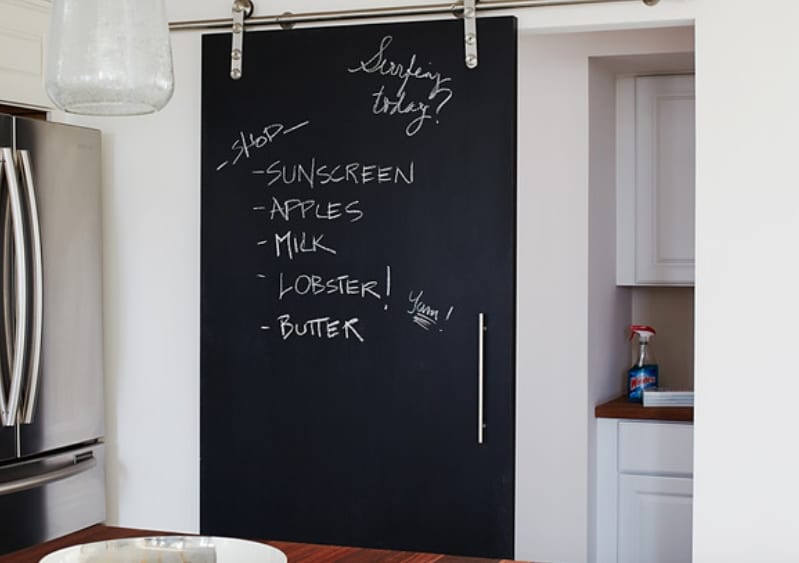 Surfing
today?
-SHOP-
-SUNSCREEN
-APPLES
-MILK
-LOBSTER!
Yum!
-BUTTER